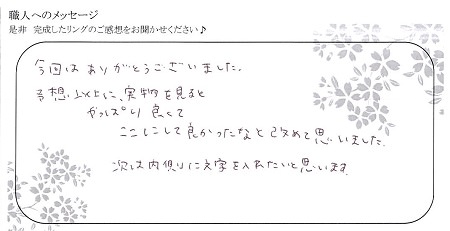 職人へのメッセージ
是非 完成したリングのご感想をお聞かせください♪
今回は ありがとうございました。
予想以上に、実物を見ると
やっぱり良くて
ここにして良かったなと改めて思いました。
次は内側りに文字を入れたいと思います